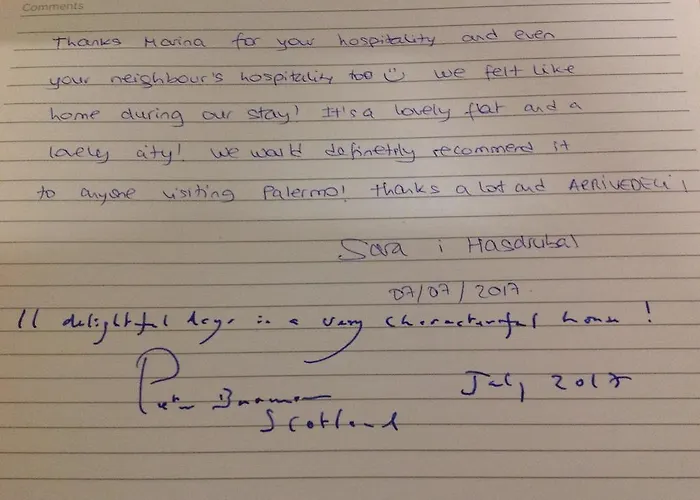 Comments
Thanks Marina for your hospitality and even
your neighbour's hospitality too ☺ we felt like
home during our stay! It's a lovely flat and a
lovely city! We would definetily recommend it
to anyone visiting Palermo! Thanks a lot and ARRIVEDECI!
Sara i Hasdrubal
07/07/2017.
11 delightful days in a very characterful house!
Peter
Scotland
July 2017